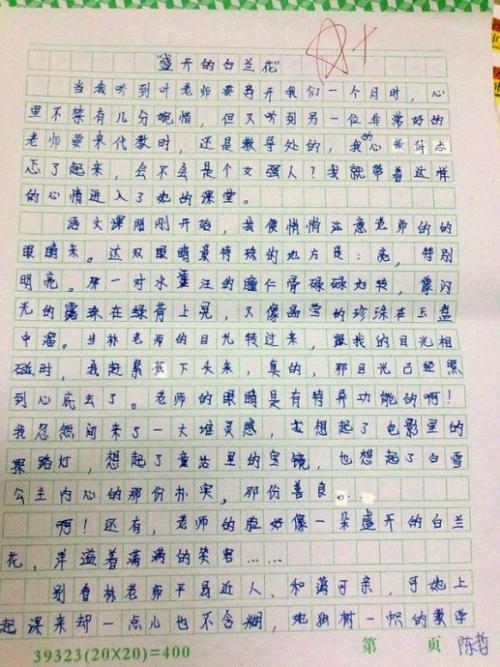 “盛开的白兰花”
当我听到叶老师要离开我们一个月时，心
里不禁有几分惋惜，但又听到另一位非常好的
老师要来代教时，还是教导处的，我的心教忐忑
忑了起来，会不会是个女强人？我就带着这样
的心情进入了她的课堂。
语文课刚刚开始，我便悄悄注意老师的的
眼睛来。这双眼睛最特殊的地方是：亮，特别
明亮。那一对水汪汪的瞳仁骨碌碌的转，像闪
光的露珠在绿荷上晃，又像晶莹的珍珠在玉盘
中溜。当林老师的目光转过来，跟我的目光相
碰时，我赶紧低下头来，真的，那目光已经照
到心底去了。老师的眼睛是有特异功能的啊！
我忽然间来了一大堆灵感，我想起了电影里的
探路灯，想起了童话里的宝镜，也想起了白雪
公主内心的那份朴实，那份善良。
啊！还有，老师的脸好像一朵盛开的白兰
花，洋溢着满满的笑容……
别看林老师平易近人、和蔼可亲，可她上
起课来却一点儿也不含糊，她独树一帜的教学
39323(20×20)=400 第 页 陈哲